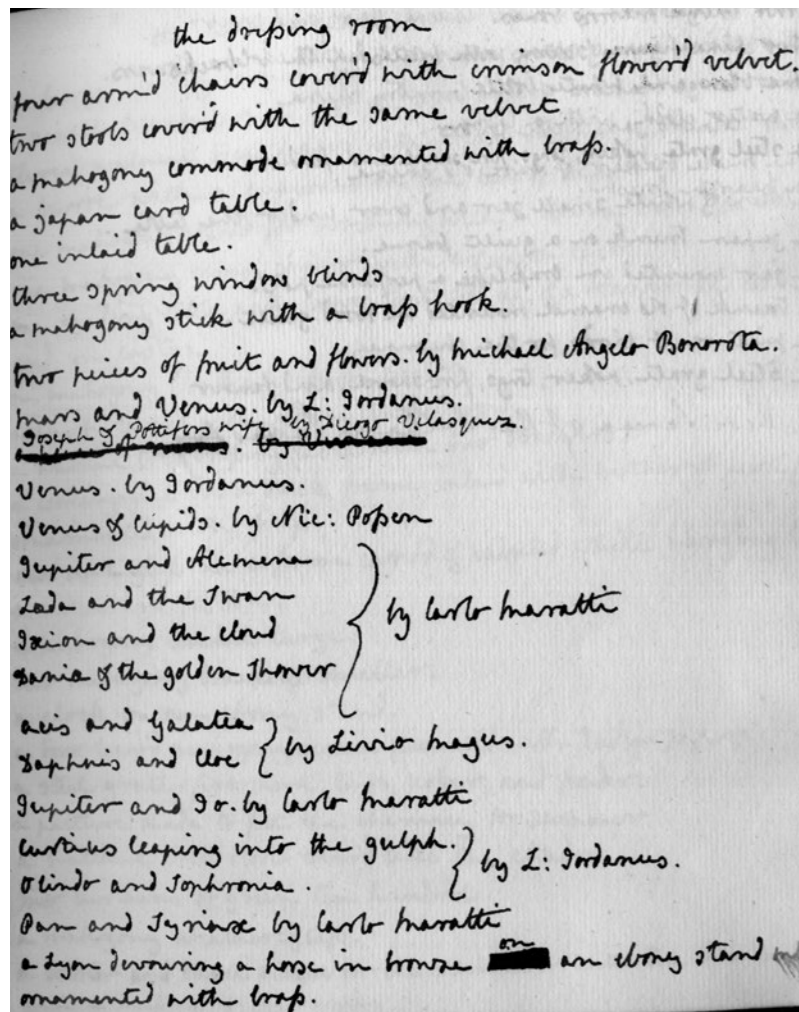 the dressing room
four arm'd chairs cover'd with crimson flower'd velvet.
two stools cover'd with the same velvet
a mahogony commode ornamented with brass.
a japan card table.
one inlaid table.
three spring window blinds
a mahogoney stick with a brass hook.
two peices of fruit and flowers. by Michael Angelo Bonorota.
mars and Venus. by L: Jordanus.
Joseph & Pottifers wife by Diego Velasquez.
Venus. by Jordanus.
Venus & cupids. by Nic: Possen
Jupiter and Alcmena
Lada and the Swan
Ixion and the cloud
Dania & the golden Shower
by Carlo Maratti
acis and Galatea
Daphnis and Cloe
by Livio Magus.
Jupiter and Io. by Carlo Maratti
Curtius leaping into the gulph.
Olindo and Sophronia.
by L: Jordanus.
Pan and Syrinx by Carlo Maratti
a Lyon devouring a horse in bronze on an eboney stand
ornamented with brass.